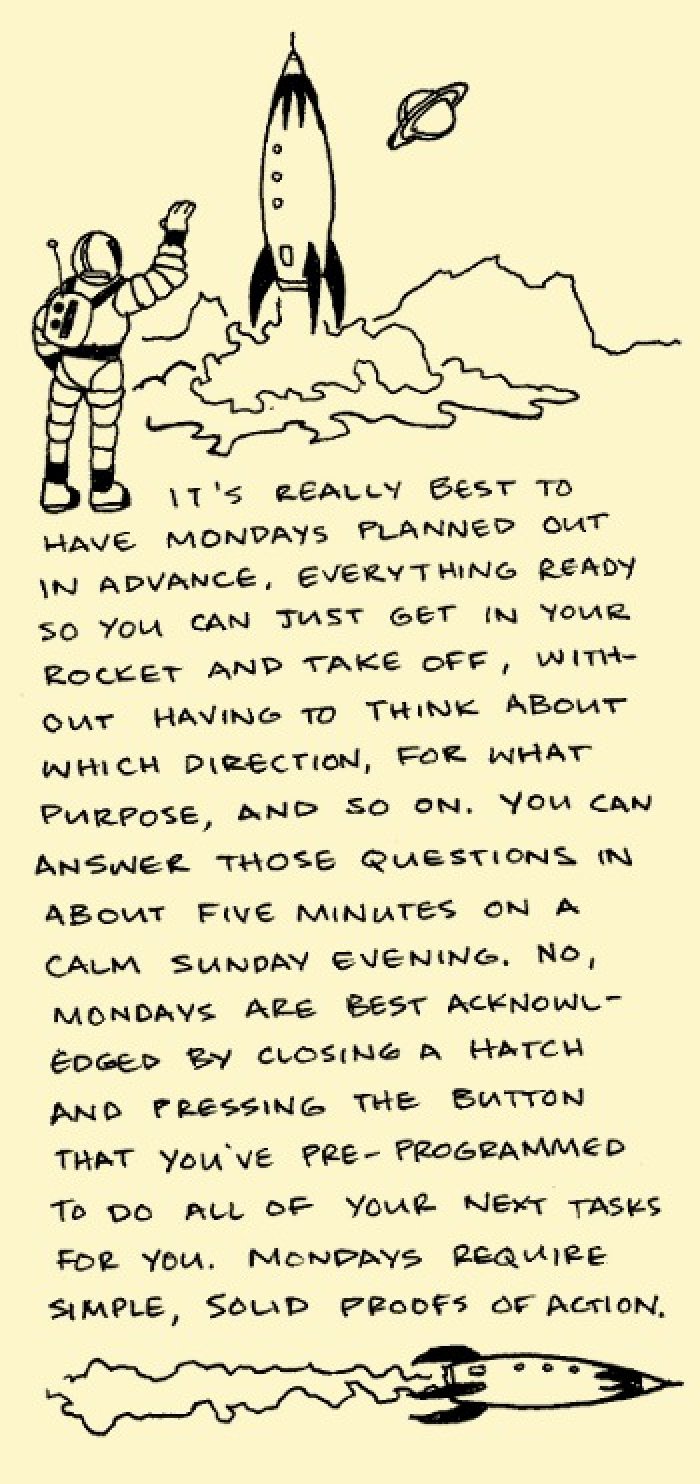 IT'S REALLY BEST TO
HAVE MONDAYS PLANNED OUT
IN ADVANCE, EVERYTHING READY
SO YOU CAN JUST GET IN YOUR
ROCKET AND TAKE OFF, WITH-
OUT HAVING TO THINK ABOUT
WHICH DIRECTION, FOR WHAT
PURPOSE, AND SO ON. YOU CAN
ANSWER THOSE QUESTIONS IN
ABOUT FIVE MINUTES ON A
CALM SUNDAY EVENING. NO,
MONDAYS ARE BEST ACKNOWL-
EDGED BY CLOSING A HATCH
AND PRESSING THE BUTTON
THAT YOU'VE PRE-PROGRAMMED
TO DO ALL OF YOUR NEXT TASKS
FOR YOU. MONDAYS REQUIRE
SIMPLE, SOLID PROOFS OF ACTION.